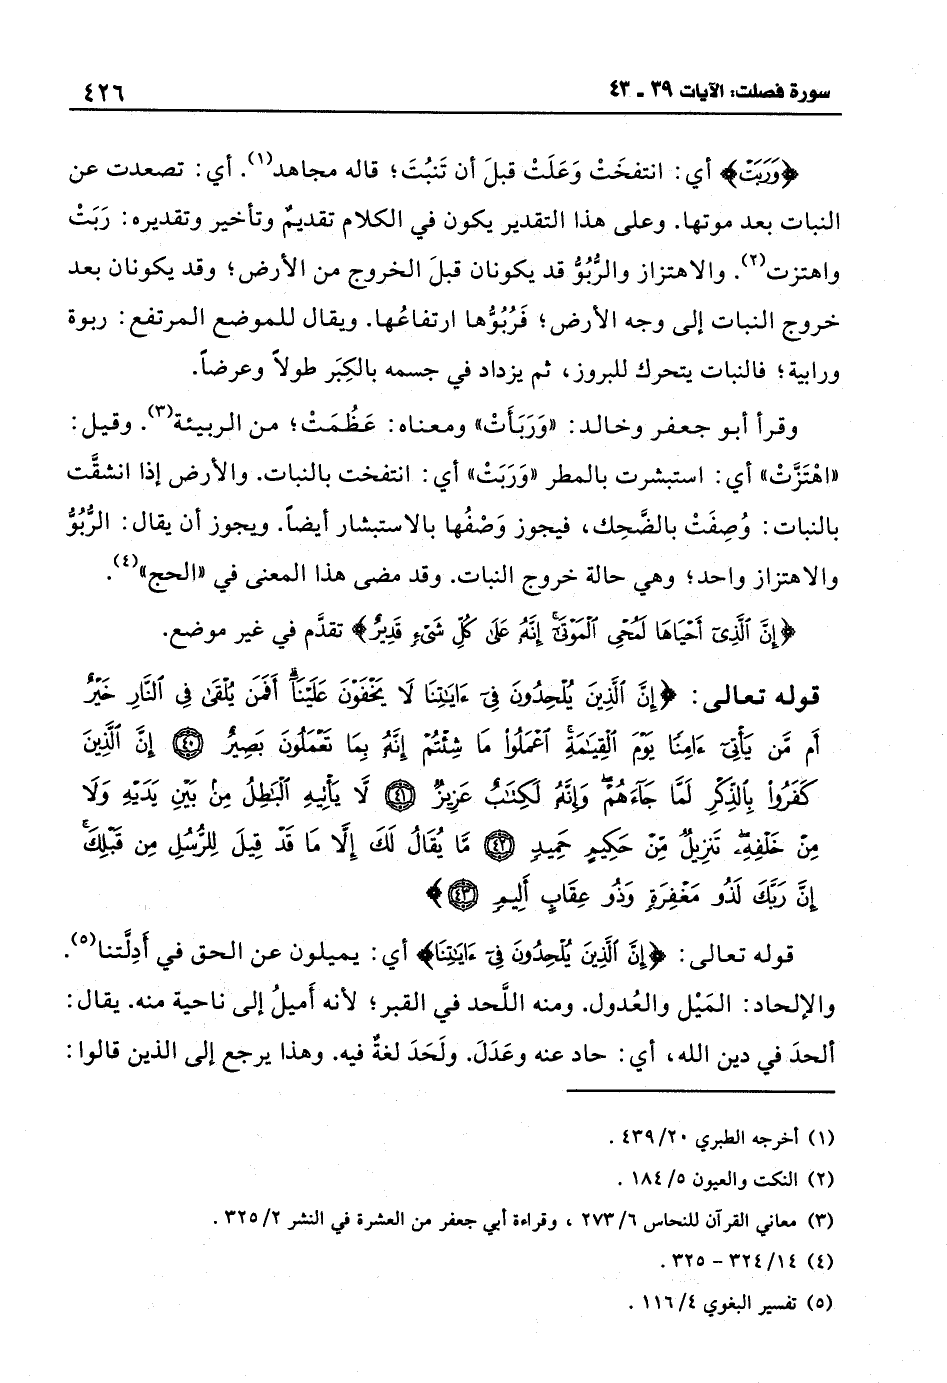 سورة فصلت: الآيات ٣٩ - ٤٣
٤٢٦
﴿وَرَبَتْ﴾ أي: انتفخَتْ وَعَلَتْ قبلَ أن تَنبُتَ؛ قاله مجاهد(١). أي: تصعدت عن
النبات بعد موتها. وعلى هذا التقدير يكون في الكلام تقديمٌ وتأخير وتقديره: رَبَتْ
واهتزت(٢). والاهتزاز والرُّبُوُّ قد يكونان قبلَ الخروج من الأرض؛ وقد يكونان بعد
خروج النبات إلى وجه الأرض؛ فَرُبُوُّها ارتفاعُها. ويقال للموضع المرتفع: ربوة
ورابية؛ فالنبات يتحرك للبروز، ثم يزداد في جسمه بالكِبَر طولاً وعرضاً.
وقرأ أبو جعفر وخالد: «وَرَبَأَتْ» ومعناه: عَظُمَتْ؛ من الربيئة(٣). وقيل:
«اهْتَزَّتْ» أي: استبشرت بالمطر «وَرَبَتْ» أي: انتفخت بالنبات. والأرض إذا انشقَّت
بالنبات: وُصِفَتْ بالضَّحِك، فيجوز وَصْفُها بالاستبشار أيضاً. ويجوز أن يقال: الرُّبُوُّ
والاهتزاز واحد؛ وهي حالة خروج النبات. وقد مضى هذا المعنى في «الحج»(٤).
﴿إِنَّ ٱلَّذِىٓ أَحْيَاهَا لَمُحْىِ ٱلْمَوْتَىٰٓ ۚ إِنَّهُۥ عَلَىٰ كُلِّ شَىْءٍ قَدِيرٌ﴾ تقدَّم في غير موضع.
قوله تعالى: ﴿إِنَّ ٱلَّذِينَ يُلْحِدُونَ فِىٓ ءَايَٰتِنَا لَا يَخْفَوْنَ عَلَيْنَآ ۗ أَفَمَن يُلْقَىٰ فِى ٱلنَّارِ خَيْرٌ
أَم مَّن يَأْتِىٓ ءَامِنًا يَوْمَ ٱلْقِيَٰمَةِ ۚ ٱعْمَلُوا۟ مَا شِئْتُمْ إِنَّهُۥ بِمَا تَعْمَلُونَ بَصِيرٌ ٤٠ إِنَّ ٱلَّذِينَ
كَفَرُوا۟ بِٱلذِّكْرِ لَمَّا جَآءَهُمْ ۖ وَإِنَّهُۥ لَكِتَٰبٌ عَزِيزٌ ٤١ لَّا يَأْتِيهِ ٱلْبَٰطِلُ مِنۢ بَيْنِ يَدَيْهِ وَلَا
مِنْ خَلْفِهِۦ ۖ تَنزِيلٌ مِّنْ حَكِيمٍ حَمِيدٍ ٤٢ مَّا يُقَالُ لَكَ إِلَّا مَا قَدْ قِيلَ لِلرُّسُلِ مِن قَبْلِكَ ۚ
إِنَّ رَبَّكَ لَذُو مَغْفِرَةٍ وَذُو عِقَابٍ أَلِيمٍ ٤٣﴾
قوله تعالى: ﴿إِنَّ ٱلَّذِينَ يُلْحِدُونَ فِىٓ ءَايَٰتِنَا﴾ أي: يميلون عن الحق في أَدِلَّتنا(٥).
والإلحاد: المَيْل والعُدول. ومنه اللَّحد في القبر؛ لأنه أميلُ إلى ناحية منه. يقال:
ألحدَ في دين الله، أي: حاد عنه وعَدَلَ. ولَحَدَ لغةٌ فيه. وهذا يرجع إلى الذين قالوا:
(١) أخرجه الطبري ٤٣٩/٢٠ .
(٢) النكت والعيون ١٨٤/٥ .
(٣) معاني القرآن للنحاس ٢٧٣/٦ ، وقراءة أبي جعفر من العشرة في النشر ٣٢٥/٢ .
(٤) ٣٢٤/١٤ - ٣٢٥ .
(٥) تفسير البغوي ١١٦/٤ .